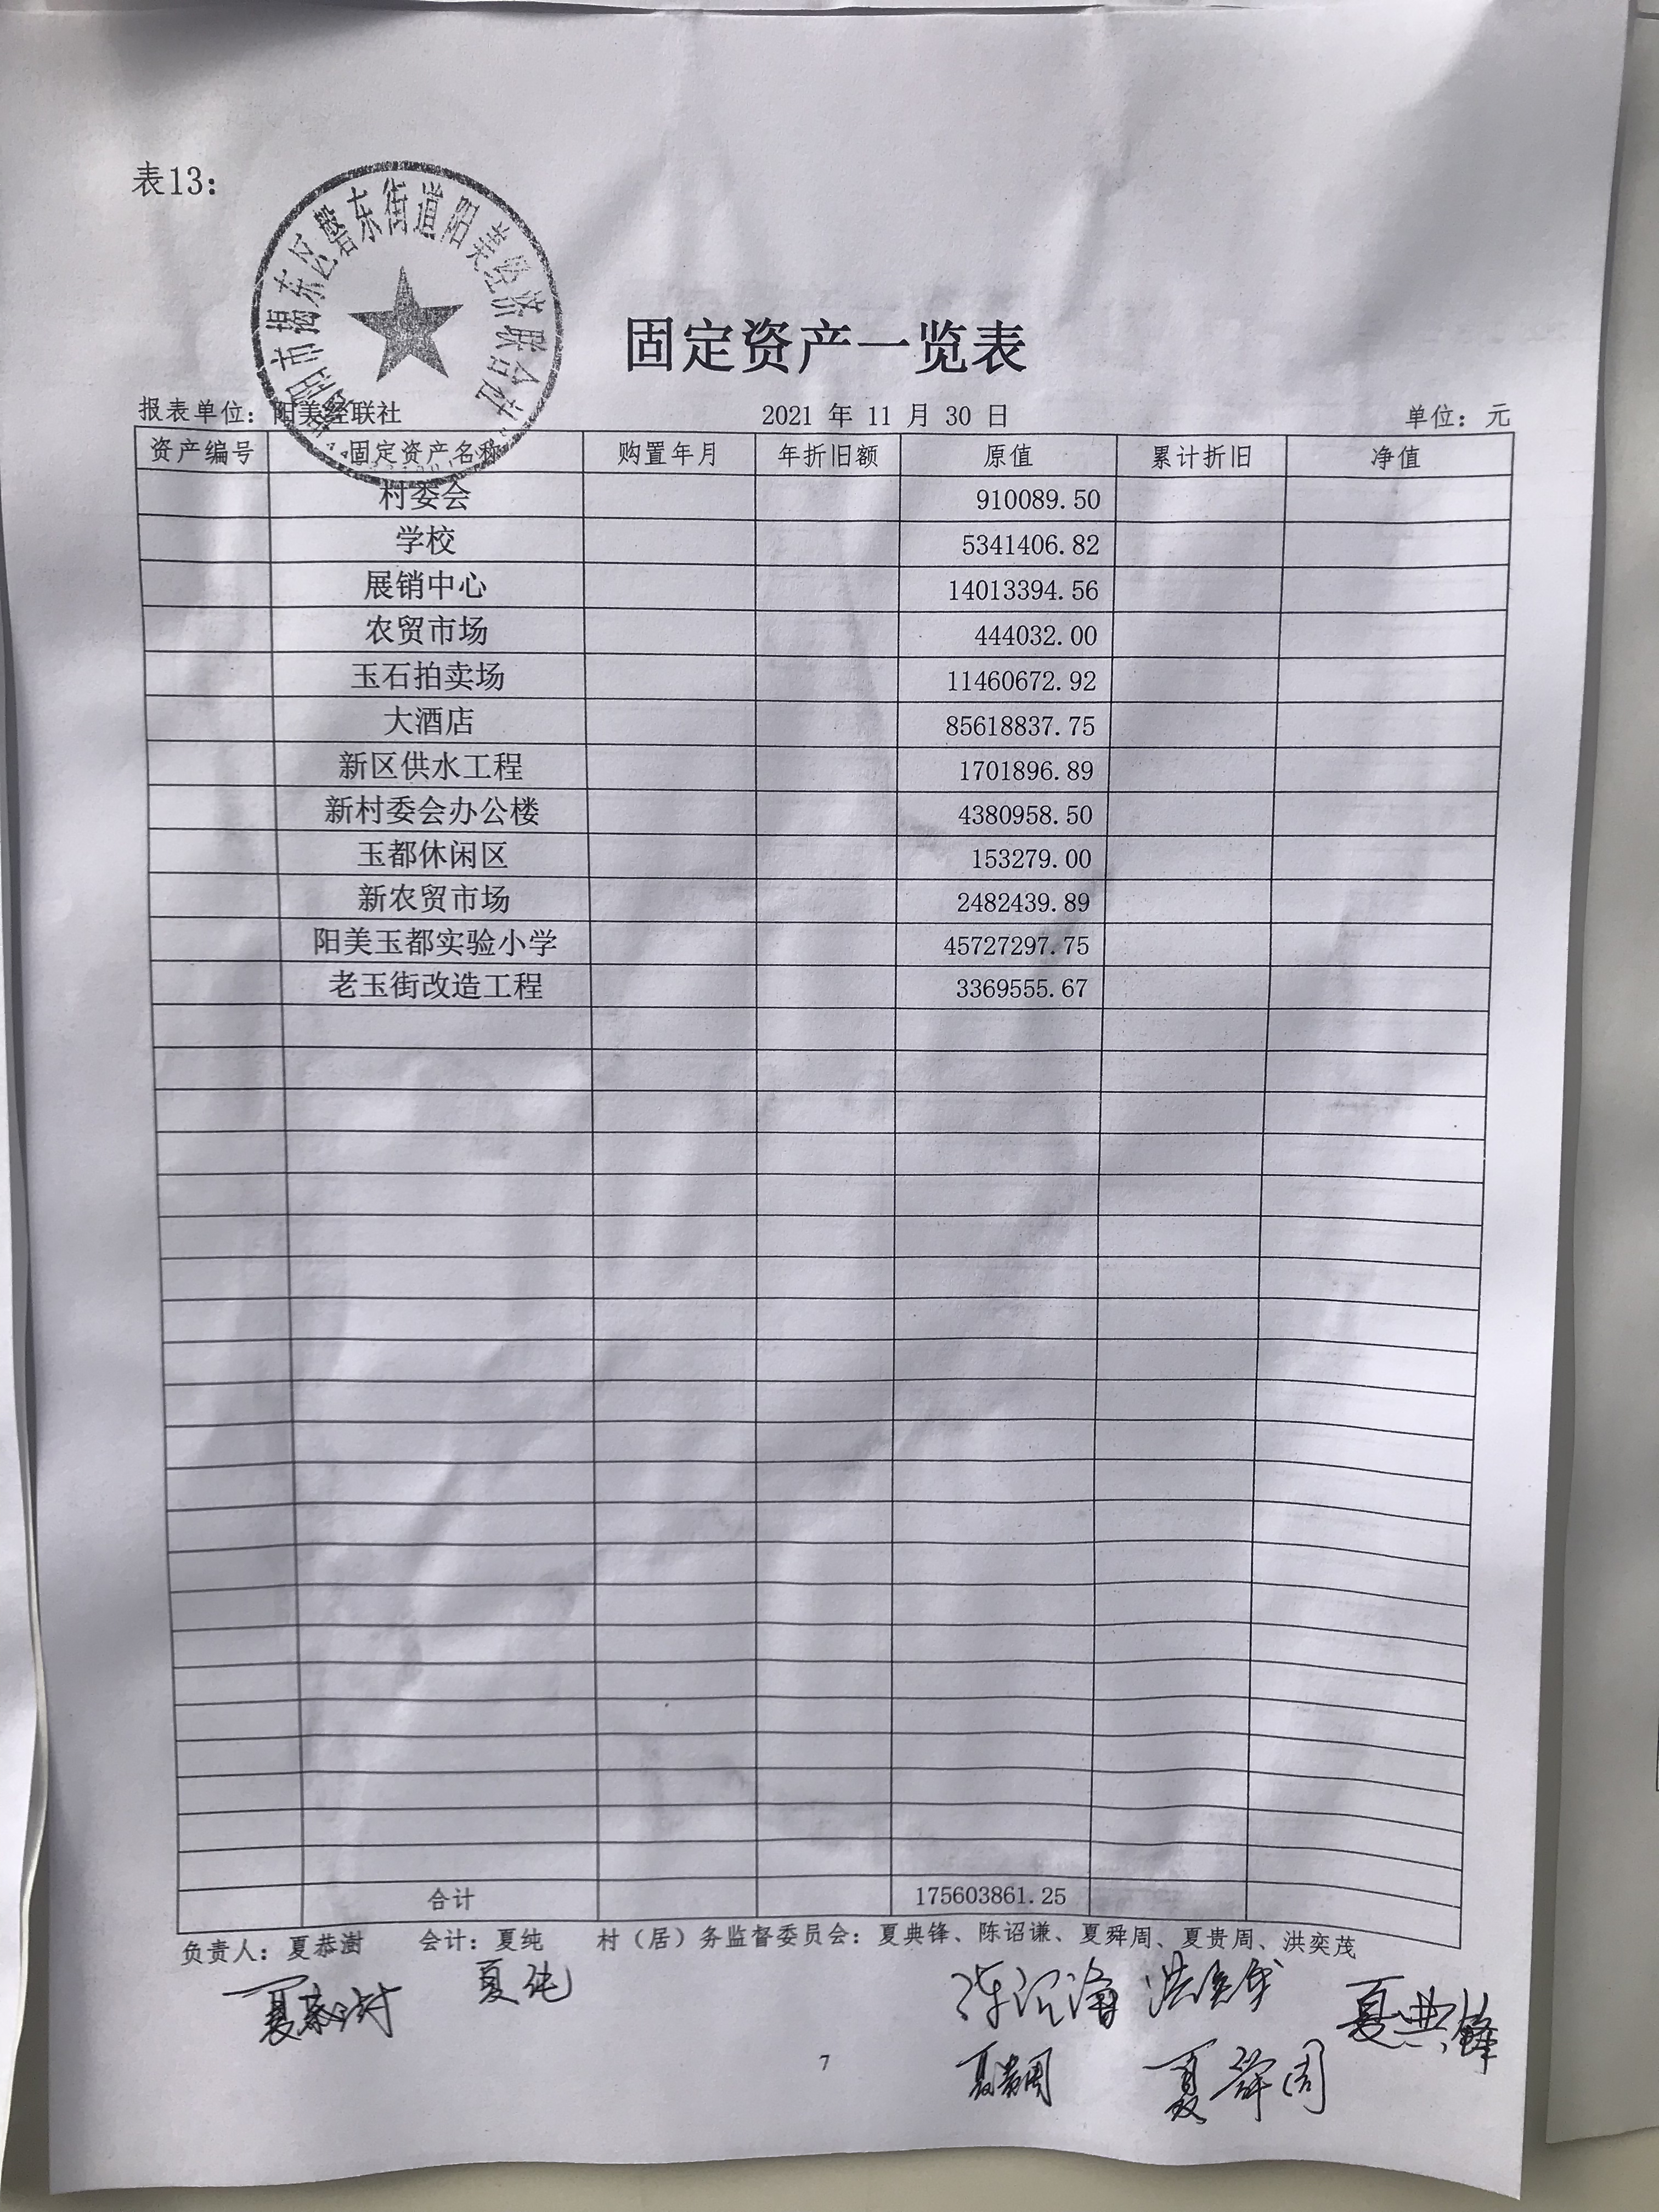 表13:
揭阳市揭东区磐东街道阳美经济联合社
固定资产一览表
报表单位：阳美经联社 2021 年 11 月 30 日 单位：元
资产编号 固定资产名称 购置年月 年折旧额 原值 累计折旧 净值
村委会 910089.50
学校 5341406.82
展销中心 14013394.56
农贸市场 444032.00
玉石拍卖场 11460672.92
大酒店 85618837.75
新区供水工程 1701896.89
新村委会办公楼 4380958.50
玉都休闲区 153279.00
新农贸市场 2482439.89
阳美玉都实验小学 45727297.75
老玉街改造工程 3369555.67
合计 175603861.25
负责人：夏恭澍 会计：夏纯 村（居）务监督委员会：夏典锋、陈诏谦、夏舜周、夏贵周、洪奕茂
夏恭澍 夏纯 陈诏谦 洪奕茂 夏典锋
夏贵周 夏舜周
7